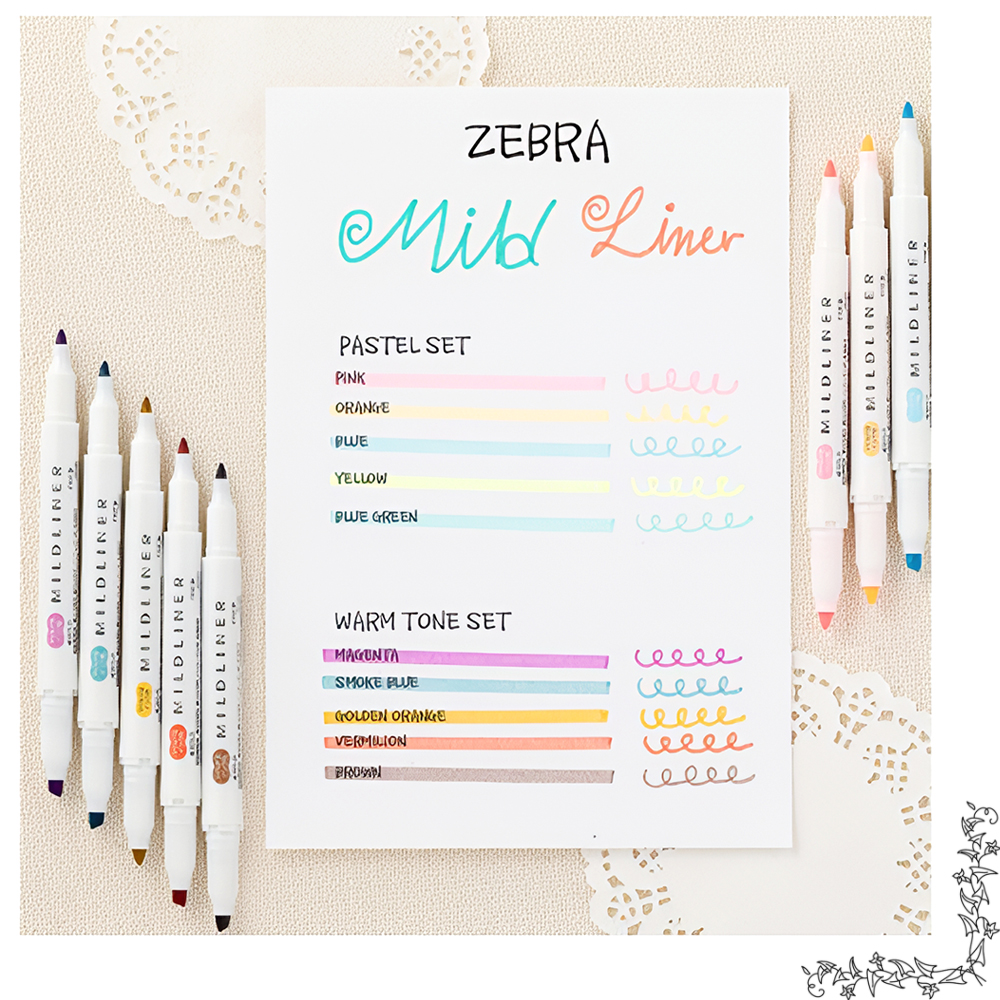 ZEBRA
Mild Liner
PASTEL SET
PINK
ORANGE
BLUE
YELLOW
BLUE GREEN
WARM TONE SET
MAGENTA
SMOKE BLUE
GOLDEN ORANGE
VERMILION
BROWN
MILDLINER
MILDLINER
MILDLINER
MILDLINER
MILDLINER
MILDLINER
MILDLINER
MILDLINER